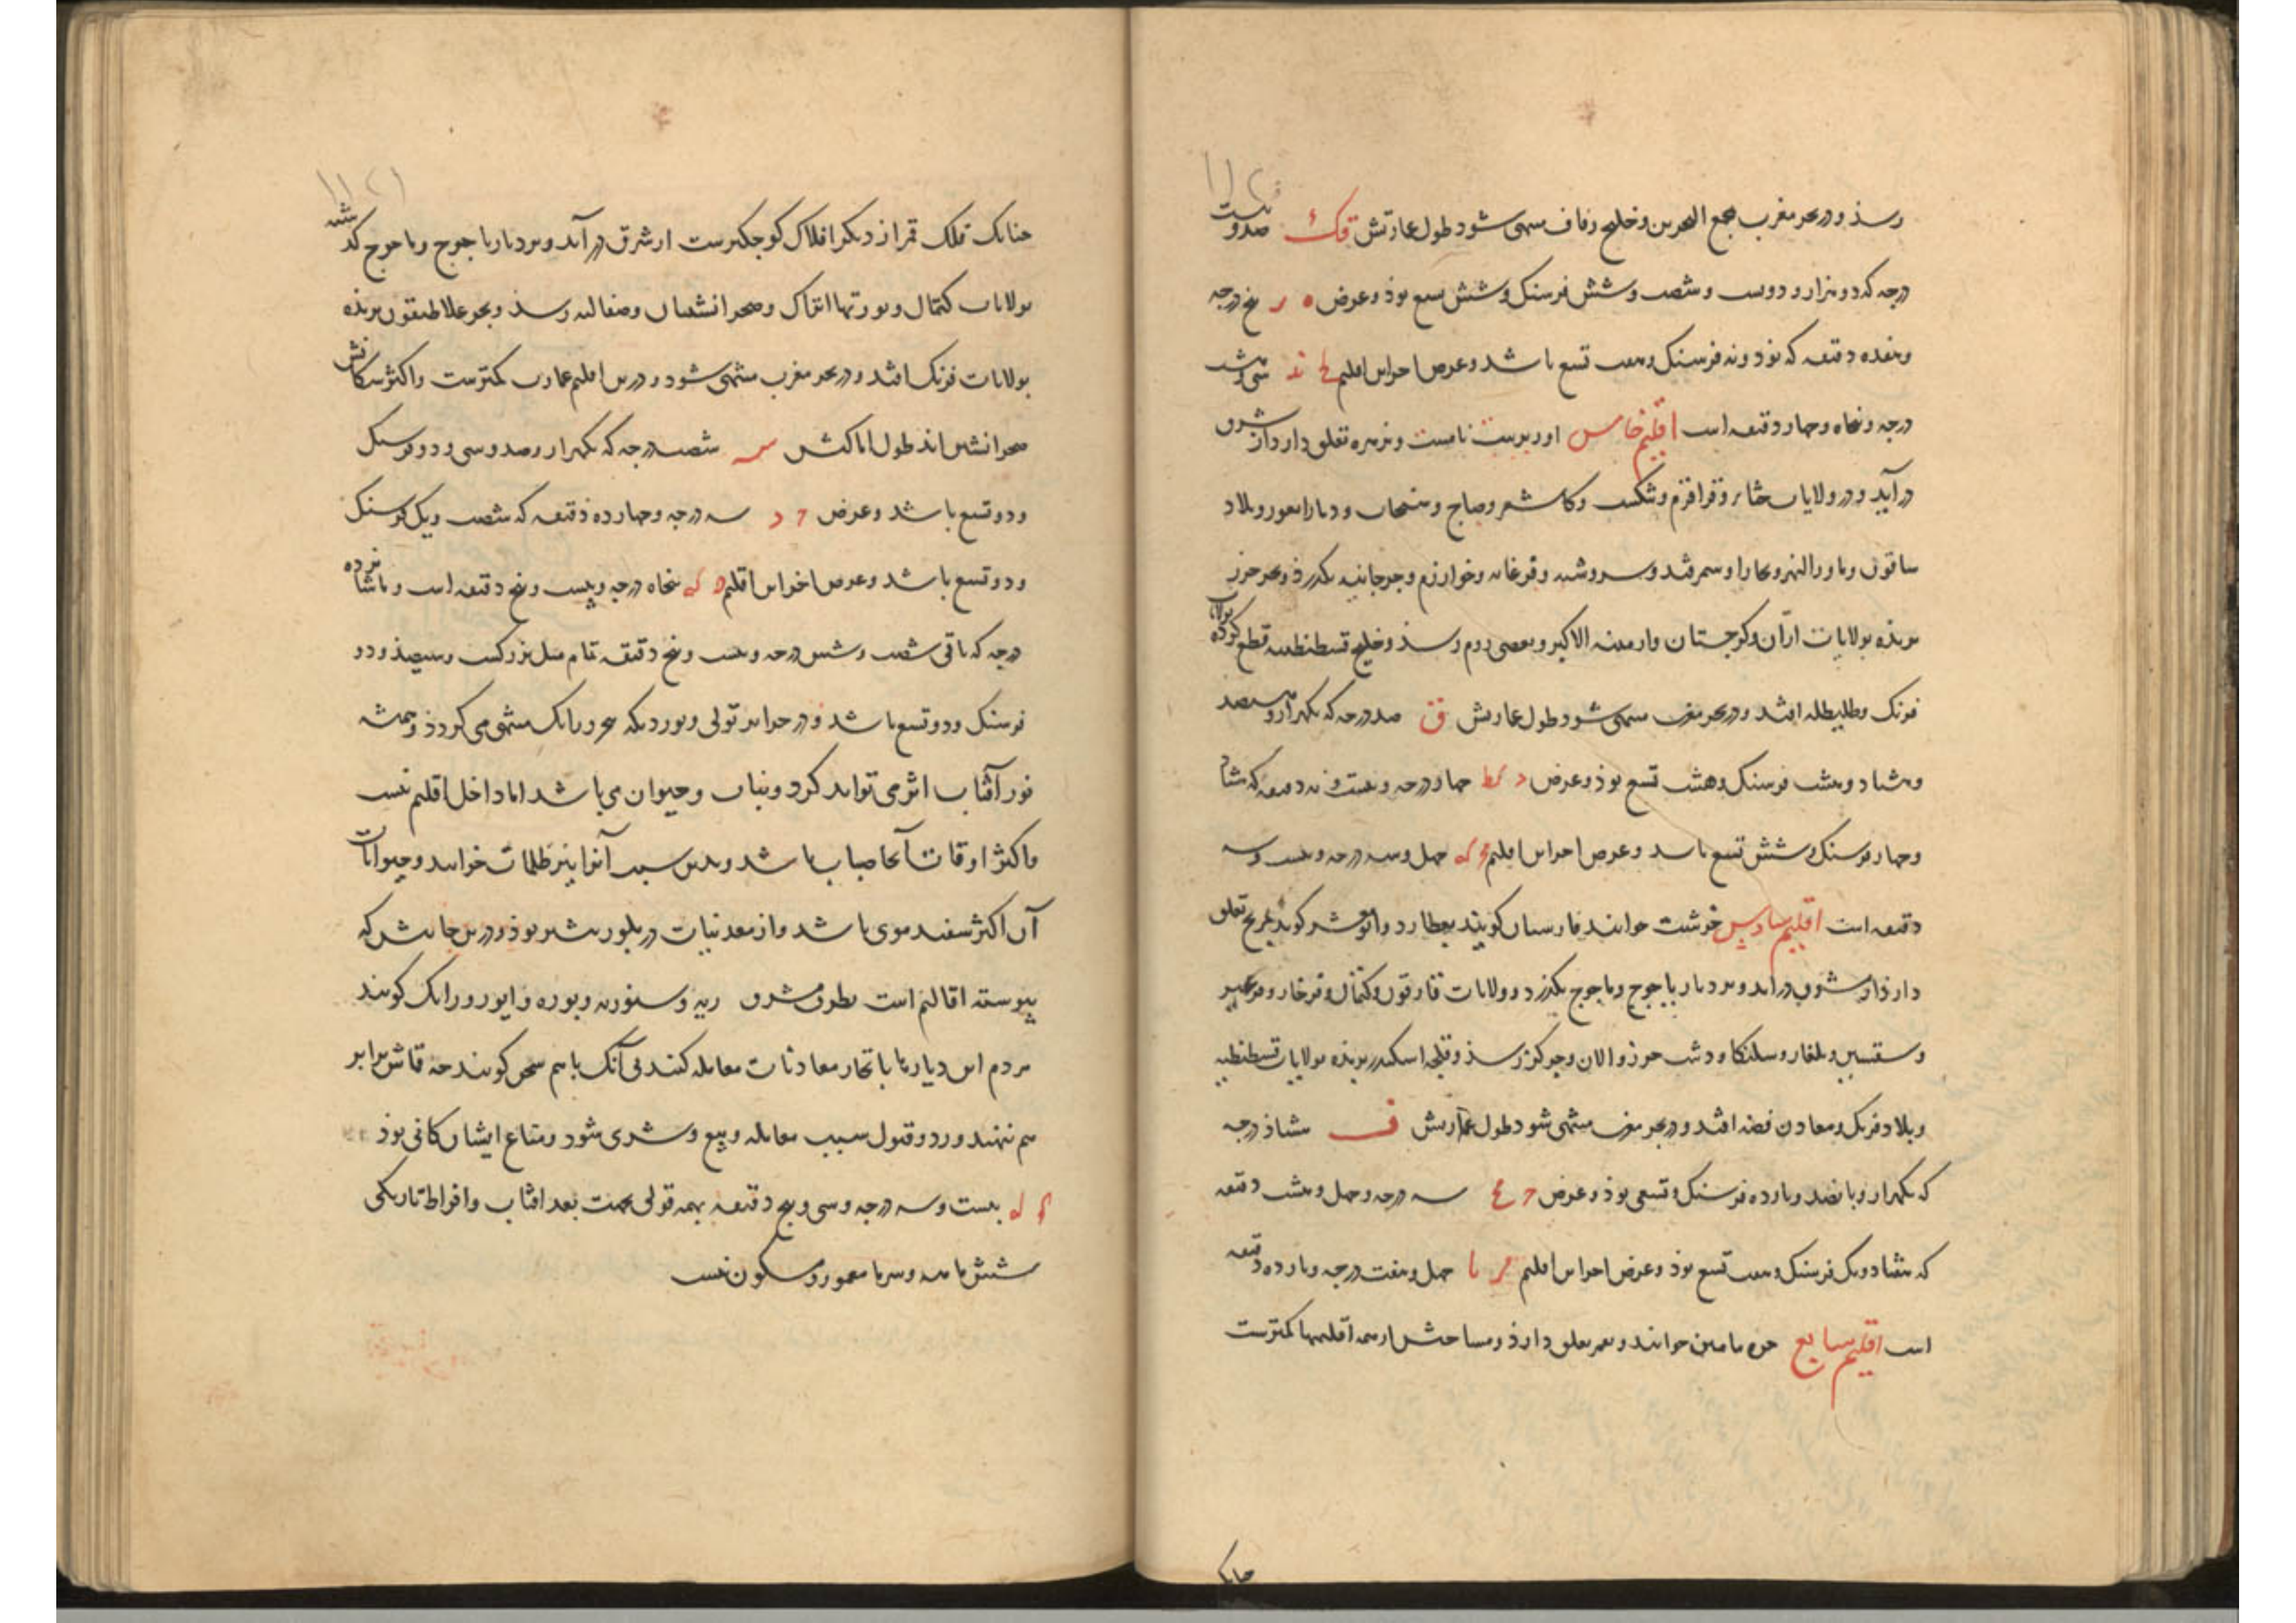 رسذ و در بحر مغرب مجمع البحرین و خلیج زقاق منتهی شود طول عمارتش قک صد و بیست
درجه که دو هزار و دویست و شصت و شش فرسنک و شش تسع بوذ و عرض ه ر پنج درجه
و هفده دقیقه که نود و نه فرسنک و هفت تسع باشد و عرض اخر این اقلیم لح ند سی و هشت
درجه و پنجاه و چهار دقیقه است اقلیم خامس و بزهره تعلق دارد از شرق
در آید و در ولایات ختا و قراقرم و کاشغر و دیار ایغور و بلاد
ساقون و ماورا النهر و بخارا و سمرقند و سروشنه و فرغانه و خوارزم و جرجانیه بکذرذ و بحر خزر
بریده بولایات اران و کرجستان و ارمنیه الاکبر و بعضی روم رسذ و خلیج قسطنطنیه قطع کرده بولایات
فرنک و طلیطله افتد و در بحر مغرب منتهی شود طول عمارتش ق صد درجه که یکهزار و هشتصد
و هشتاد و هشت فرسنک و هشت تسع بوذ و عرض د کط چهار درجه و بیست و نه دقیقه که هشتاد
و چهار فرسنک و شش تسع باشد و عرض اخر این اقلیم چهل و سه درجه و بیست و سه
دقیقه است اقلیم سادس خوانند فارسیان کویند بعطارد و کویند بمریخ تعلق
دارذ از شرق در اید و بر دیار یاجوج و ماجوج بکذرد و ولایات و کتمال و فرخار و
و سقسین و بلغار و سلنکا و دشت خزر و الان و چرکز رسذ و خلیج اسکندر بریذه بولایات قسطنطنیه
و بلاد فرنک و معادن فضه افتد و در بحر مغرب منتهی شود طول عمارتش ف هشتاذ درجه
که یکهزار و پانصد و یازده فرسنک و تسعی بوذ و عرض ج مح سه درجه و چهل و هشت دقیقه
که هشتاد و یک فرسنک و هفت تسع بوذ و عرض اخر این اقلیم مز یا چهل و هفت درجه و یازده دقیقه
است اقلیم سابع خوانند و بقمر تعلق دارذ و مساحتش از همه اقلیمها کمترست
چنانک
چنانک فلک قمر از دیکر افلاک کوچکترست از شرق در آید و بر دیار یاجوج و ماجوج کذشته
بولایات کتمال و یورتها اتراک و صحرانشینان و صقالبه رسذ و بحر غلاطیقون بریذه
بولایات فرنک افتد و در بحر مغرب منتهی شود و درین اقلیم عمارت کمترست و اکثر سکانش
صحرانشین اند طول اماکنش س شصت درجه که یکهزار و صد و سی و دو فرسنک
و دو تسع باشد و عرض ج ید سه درجه و چهارده دقیقه که شصت و یک فرسنک
و دو تسع باشد و عرض اخر این اقلیم ن که پنجاه درجه و بیست و پنج دقیقه است و پانزده
درجه که باقی شصت و شش درجه و بیست و پنج دقیقه تمام میل بزرکست و سیصد و دو
فرسنک و دو تسع باشد و در جزایر تولی و یورد بکه بحر ورانک منتهی می کردذ و همیشه
نور آفتاب اثر می تواند کرد و نبات و حیوان می باشد اما داخل اقلیم نیست
و اکثر اوقات آنجا ضباب باشد و بدین سبب آنرا نیز ظلمات خوانند و حیوانات
آن اکثر سفید موی باشد و از معدنیات در بلور بیشتر بوذ و درین جانبش که
پیوسته اقالیم است بطرف مشرق و سنوریه و یوره و ایور ورانک کویند
مردم این دیارها با تجار معادنات معامله کنند بی آنک باهم سخن کویند چه قماش برابر
هم نهند و رد و قبول سبب معامله و بیع و شری شود و متاع ایشان کافی بوذ
کج له بیست و سه درجه و سی و پنج دقیقه بهمه قولی بجهت بعد افتاب و افراط تاریکی
شش ماهه و سرما معمور و مسکون نیست